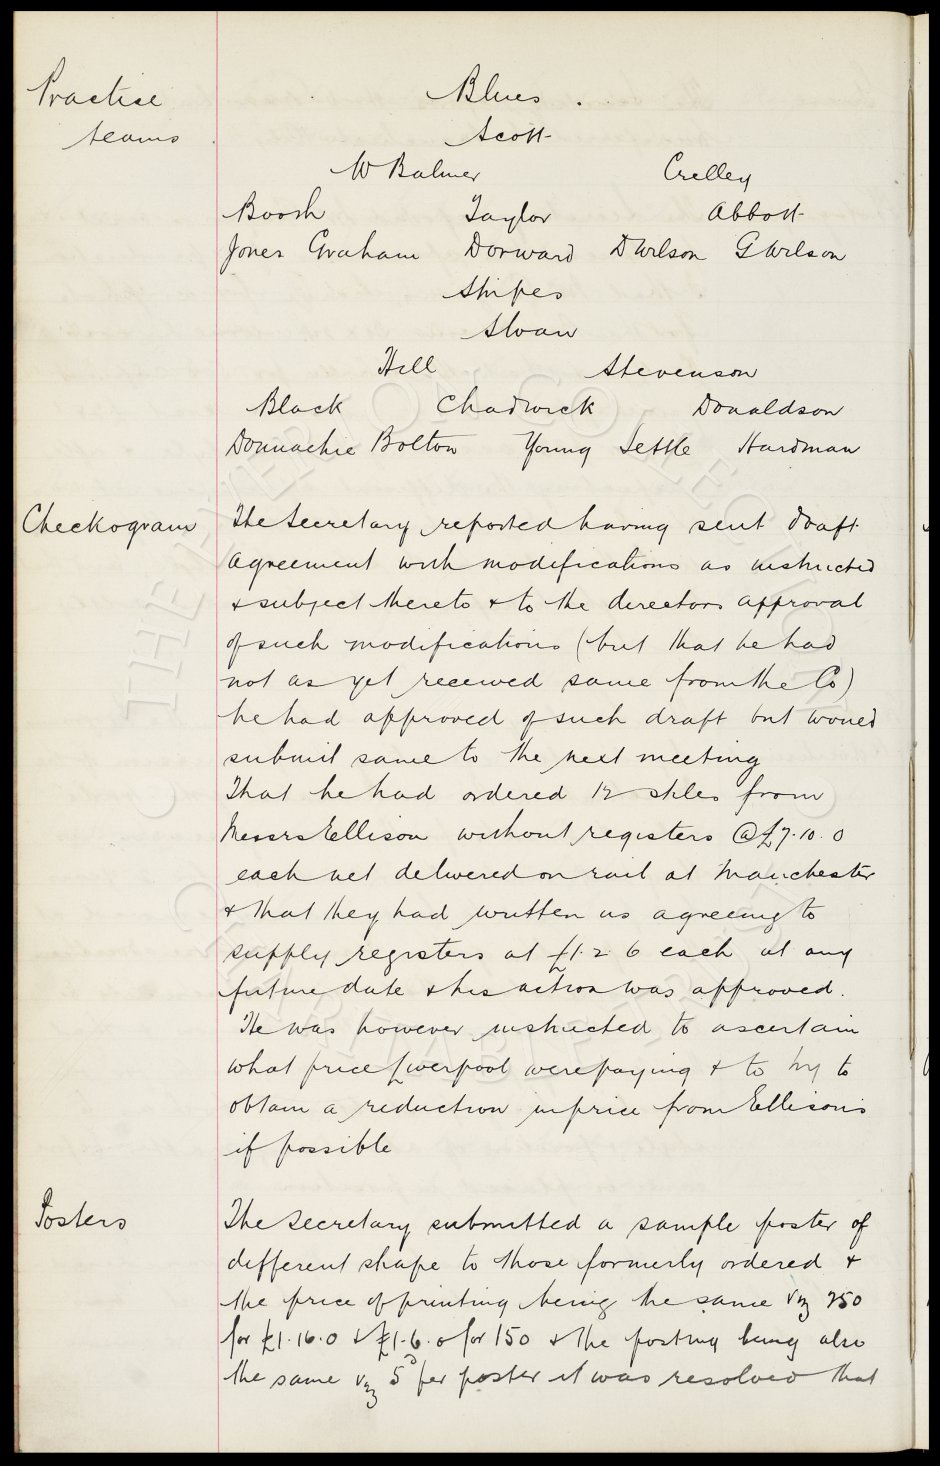 Practise
teams
Blues.
Scott
W Balmer Crelley
Booth Taylor Abbott
Jones Graham Dorward D Wilson G Wilson
Stripes
Sloan
Hill Stevenson
Black Chadwick Donaldson
Donnachie Bolton Young Settle Hardman
Checkogram
The Secretary reported having sent draft
agreement with modifications as instructed
& subject thereto & to the directors approval
of such modifications (but that he had
not as yet received same from the Co)
he had approved of such draft but would
submit same to the next meeting
That he had ordered 12 stiles from
Messrs Ellison without registers @ £7.10.0
each net delivered on rail at Manchester
& that they had written us agreeing to
supply registers at £1.2.6 each at any
future date & his action was approved.
He was however instructed to ascertain
what price Liverpool were paying & to try to
obtain a reduction in price from Ellison's
if possible
Posters
The Secretary submitted a sample poster of
different shape to those formerly ordered &
the price of printing being the same viz 250
for £1.16.0 & £1.6.0 for 150 & the posting being also
the same viz 5d per poster it was resolved that
THE EVERTON COLLECTION